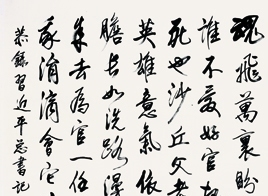 魂飛萬裏盼
誰不愛好官
死也沙丘父老
英雄意氣依
膽長如洗路漫
來去為官一任
我涓滴會它
恭錄習近平总書記